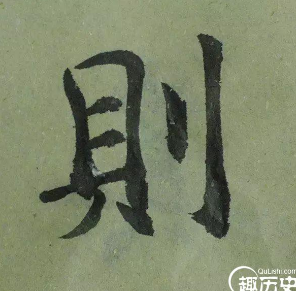 則
QuLishi.com
趣历史